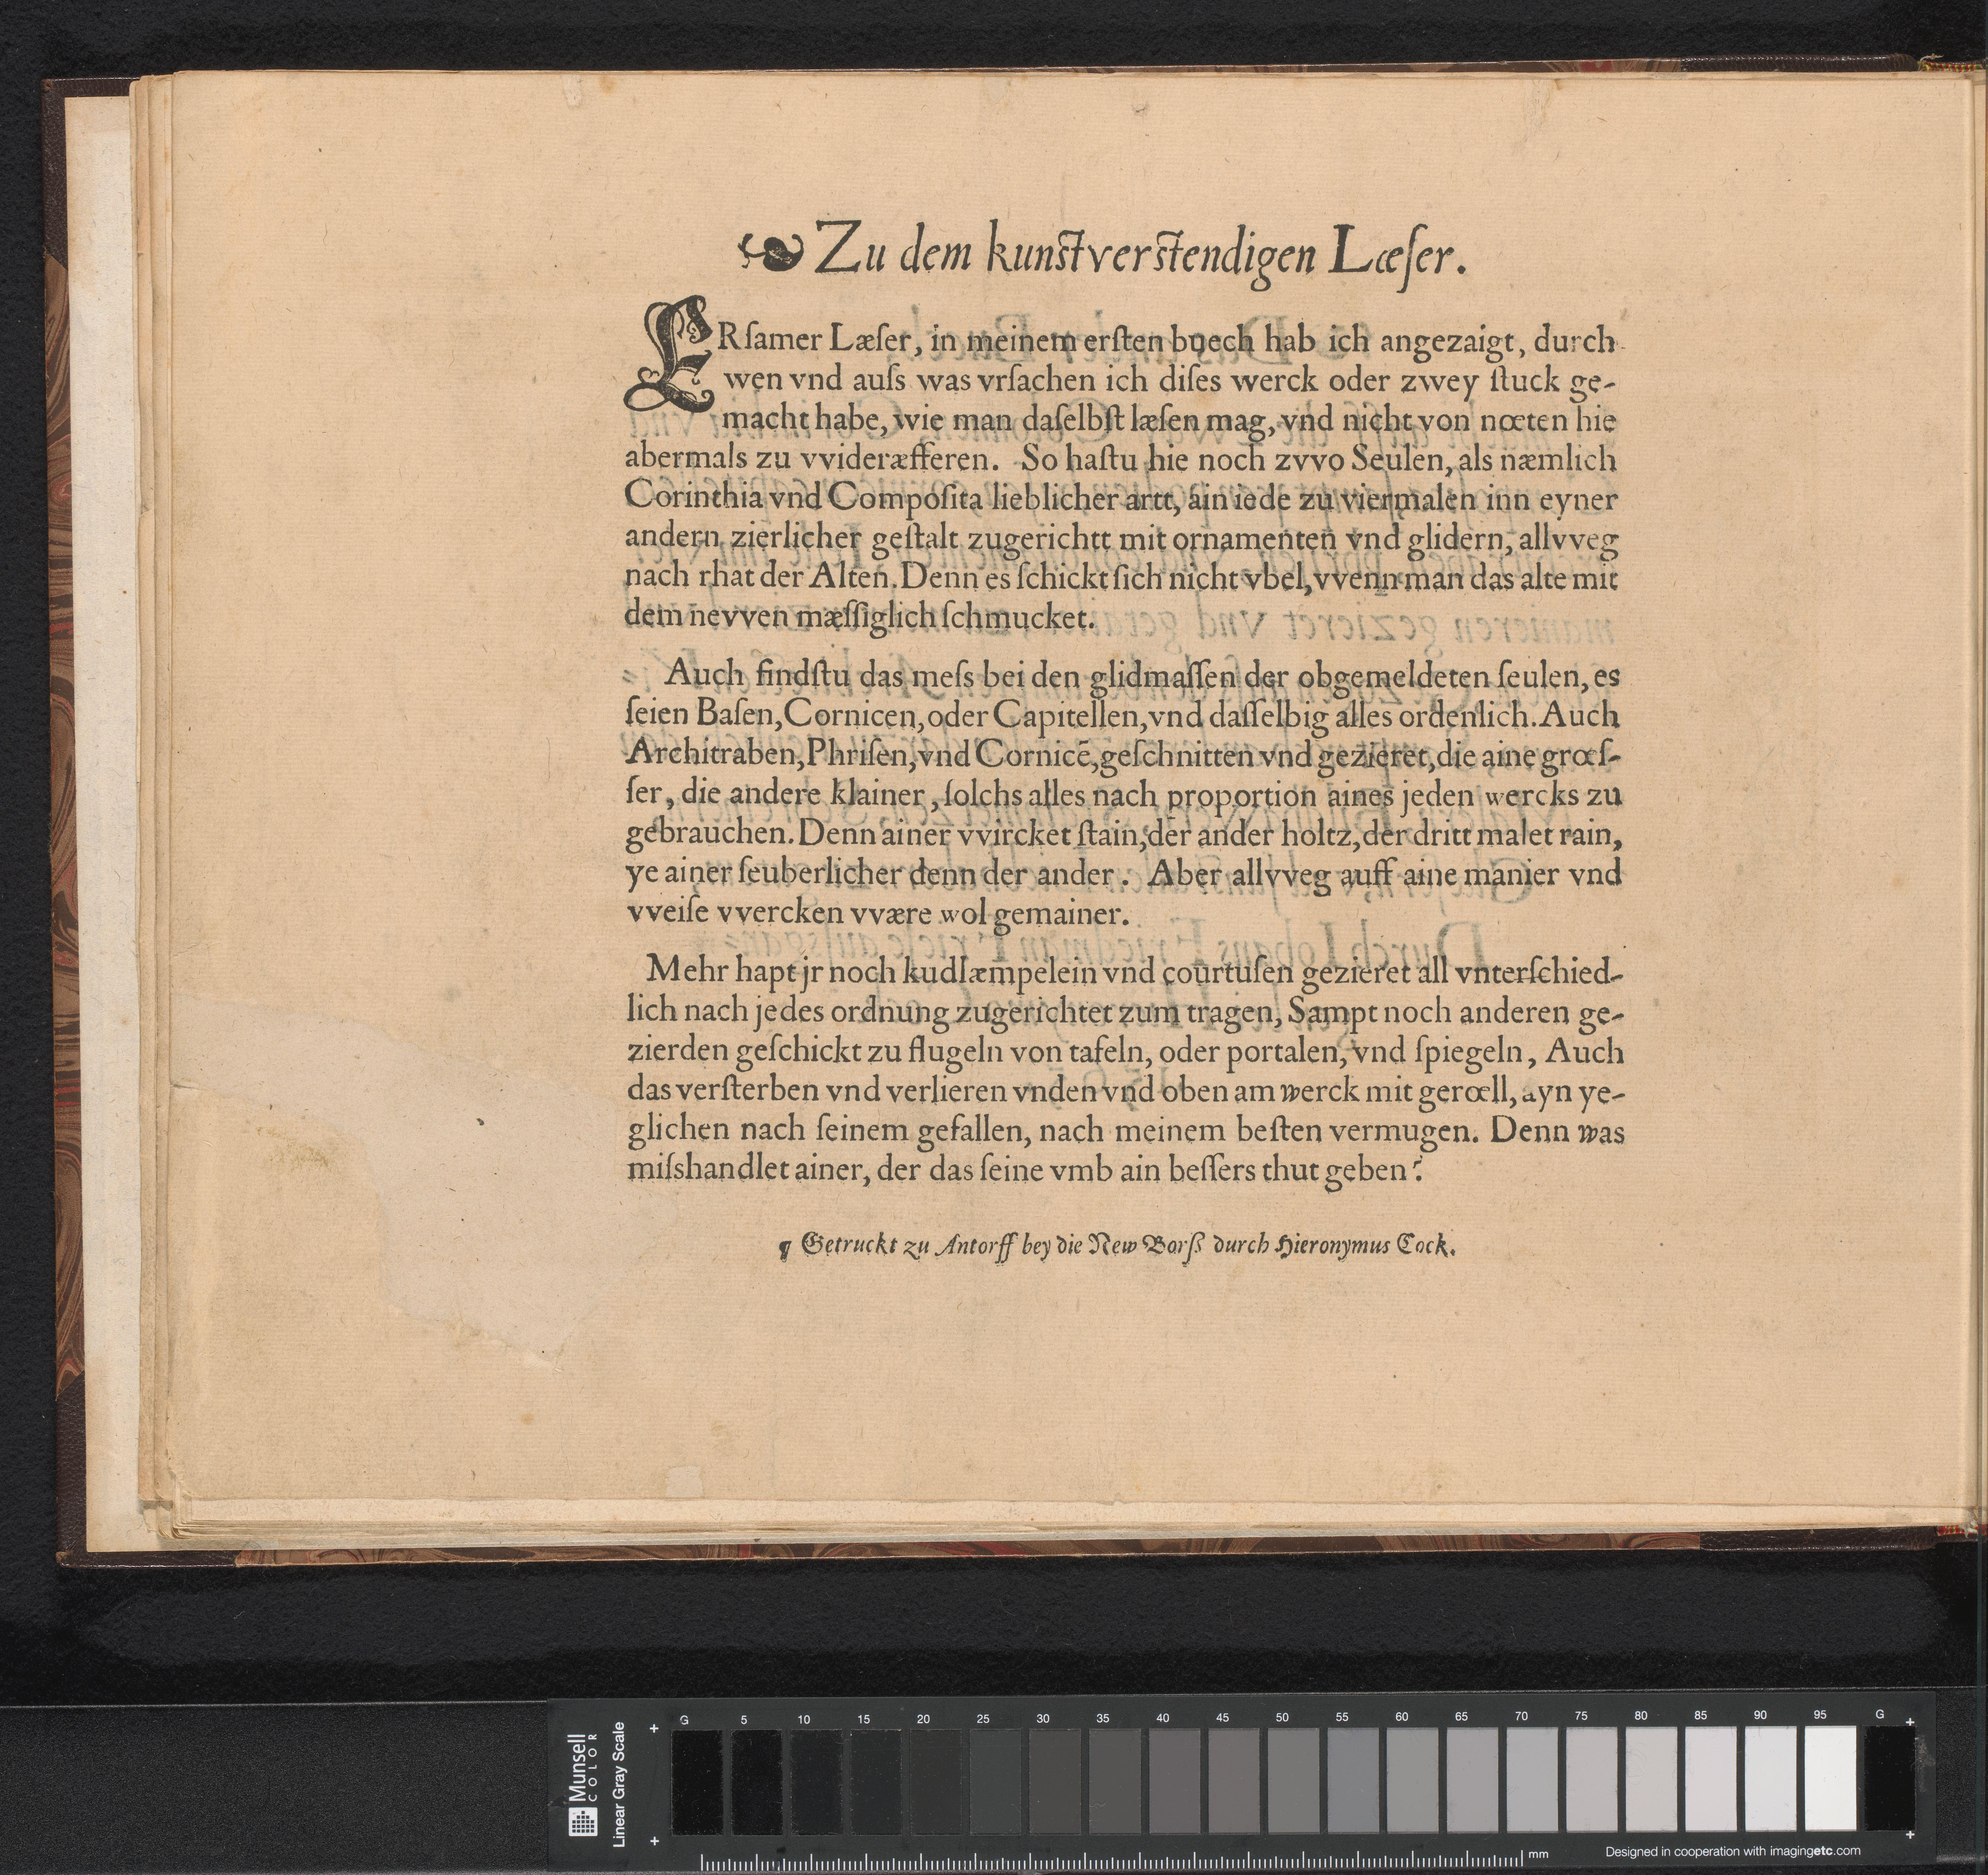 Zu dem kunstverstendigen Læſer.
ERſamer Læſer, in meinem erſten buech hab ich angezaigt, durch
wen vnd auſs was vrſachen ich diſes werck oder zwey ſtuck ge-
macht habe, wie man daſelbſt læſen mag, vnd nicht von nœten hie
abermals zu vvideræfferen. So haſtu hie noch zvvo Seulen, als næmlich
Corinthia vnd Compoſita lieblicher artt, ain iede zu viermalen inn eyner
andern zierlicher geſtalt zugerichtt mit ornamenten vnd glidern, allvveg
nach rhat der Alten. Denn es ſchickt ſich nicht vbel, vvenn man das alte mit
dem nevven mæſſiglich ſchmucket.
Auch findſtu das meſs bei den glidmaſſen der obgemeldeten ſeulen, es
ſeien Baſen, Cornicen, oder Capitellen, vnd daſſelbig alles ordenlich. Auch
Architraben, Phriſen, vnd Cornicē, geſchnitten vnd gezieret, die aine grœſ-
ſer, die andere klainer, ſolchs alles nach proportion aines jeden wercks zu
gebrauchen. Denn ainer vvircket ſtain, der ander holtz, der dritt malet rain,
ye ainer ſeuberlicher denn der ander. Aber allvveg auff aine manier vnd
vveiſe vvercken vvære wol gemainer.
Mehr hapt jr noch kudlæmpelein vnd courtuſen gezieret all vnterſchied-
lich nach jedes ordnung zugerichtet zum tragen, Sampt noch anderen ge-
zierden geſchickt zu flugeln von tafeln, oder portalen, vnd ſpiegeln, Auch
das verſterben vnd verlieren vnden vnd oben am werck mit gerœll, ayn ye-
glichen nach ſeinem gefallen, nach meinem beſten vermugen. Denn was
miſshandlet ainer, der das ſeine vmb ain beſſers thut geben?
¶ Getruckt zu Antorff bey die New Borſs durch Hieronymus Cock.
Munsell
COLOR
Linear Gray Scale
G 5 10 15 20 25 30 35 40 45 50 55 60 65 70 75 80 85 90 95 G
mm
Designed in cooperation with imagingetc.com